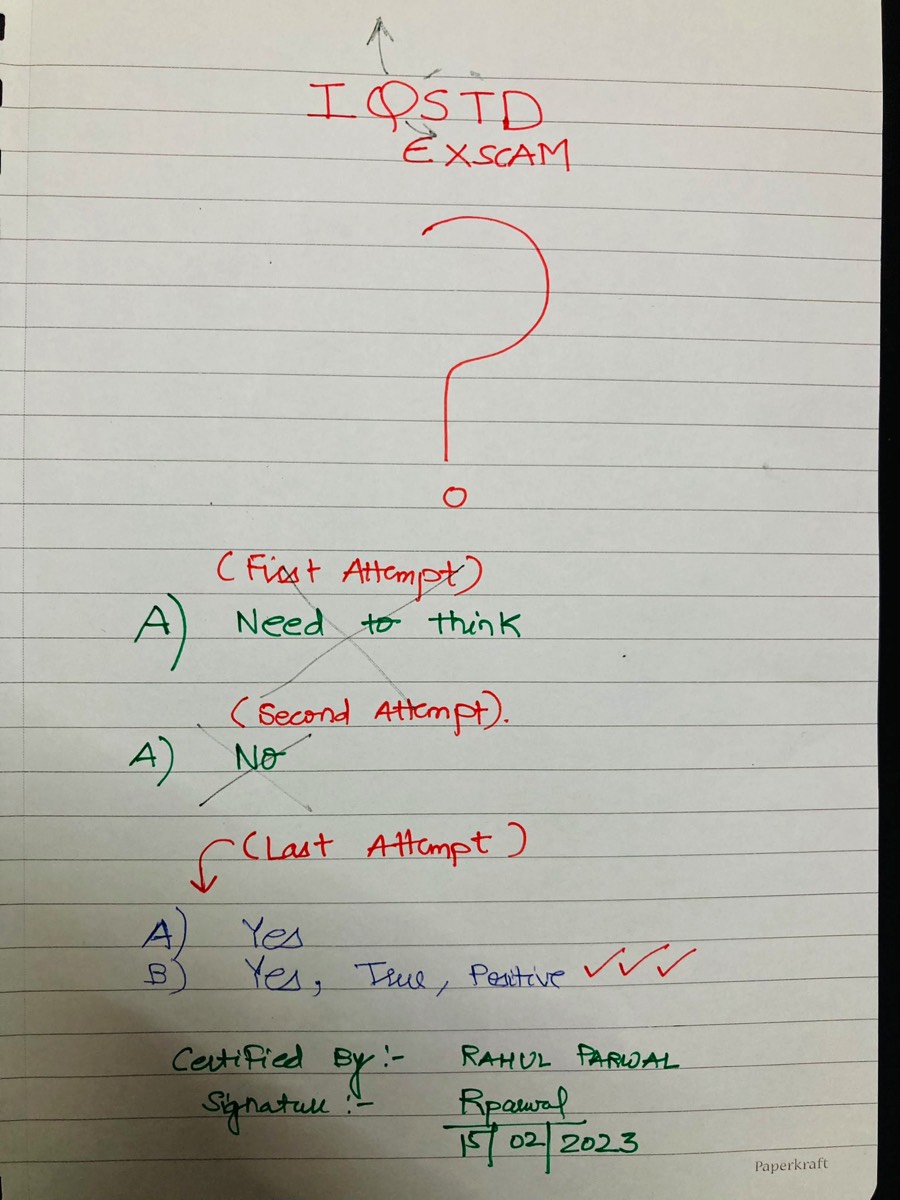 IQSTD
EXSCAM
?
(First Attempt)
A) Need to think
(Second Attempt).
A) No
(Last Attempt)
A) Yes
B) Yes, True, Positive ✓✓✓
Certified By :- RAHUL PARWAL
Signature :- Rparwal
15/02/2023
Paperkraft